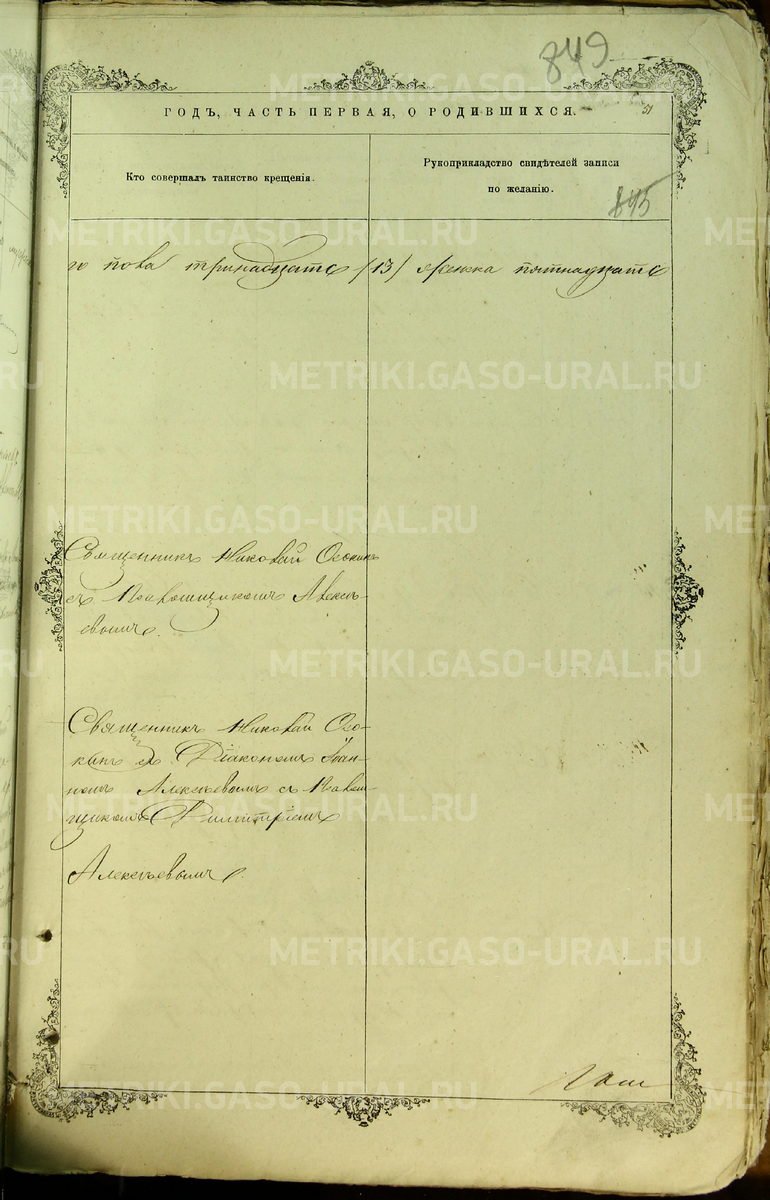 849
ГОДЪ, ЧАСТЬ ПЕРВАЯ, О РОДИВШИХСЯ.
51
Кто совершалъ таинство крещенія.
Рукоприкладство свидѣтелей записи
по желанію.
845
го пола тринадцать /13/ женска пятнадцать
Священникъ Николай Осокинъ
съ Псаломщикомъ Алексѣ-
евымъ.
Священникъ Николай Осо-
кинъ съ Діакономъ Іоан-
номъ Алексѣевымъ съ Псалом-
щикомъ Димитріемъ
Алексѣевымъ.
METRIKI.GASO-URAL.RU